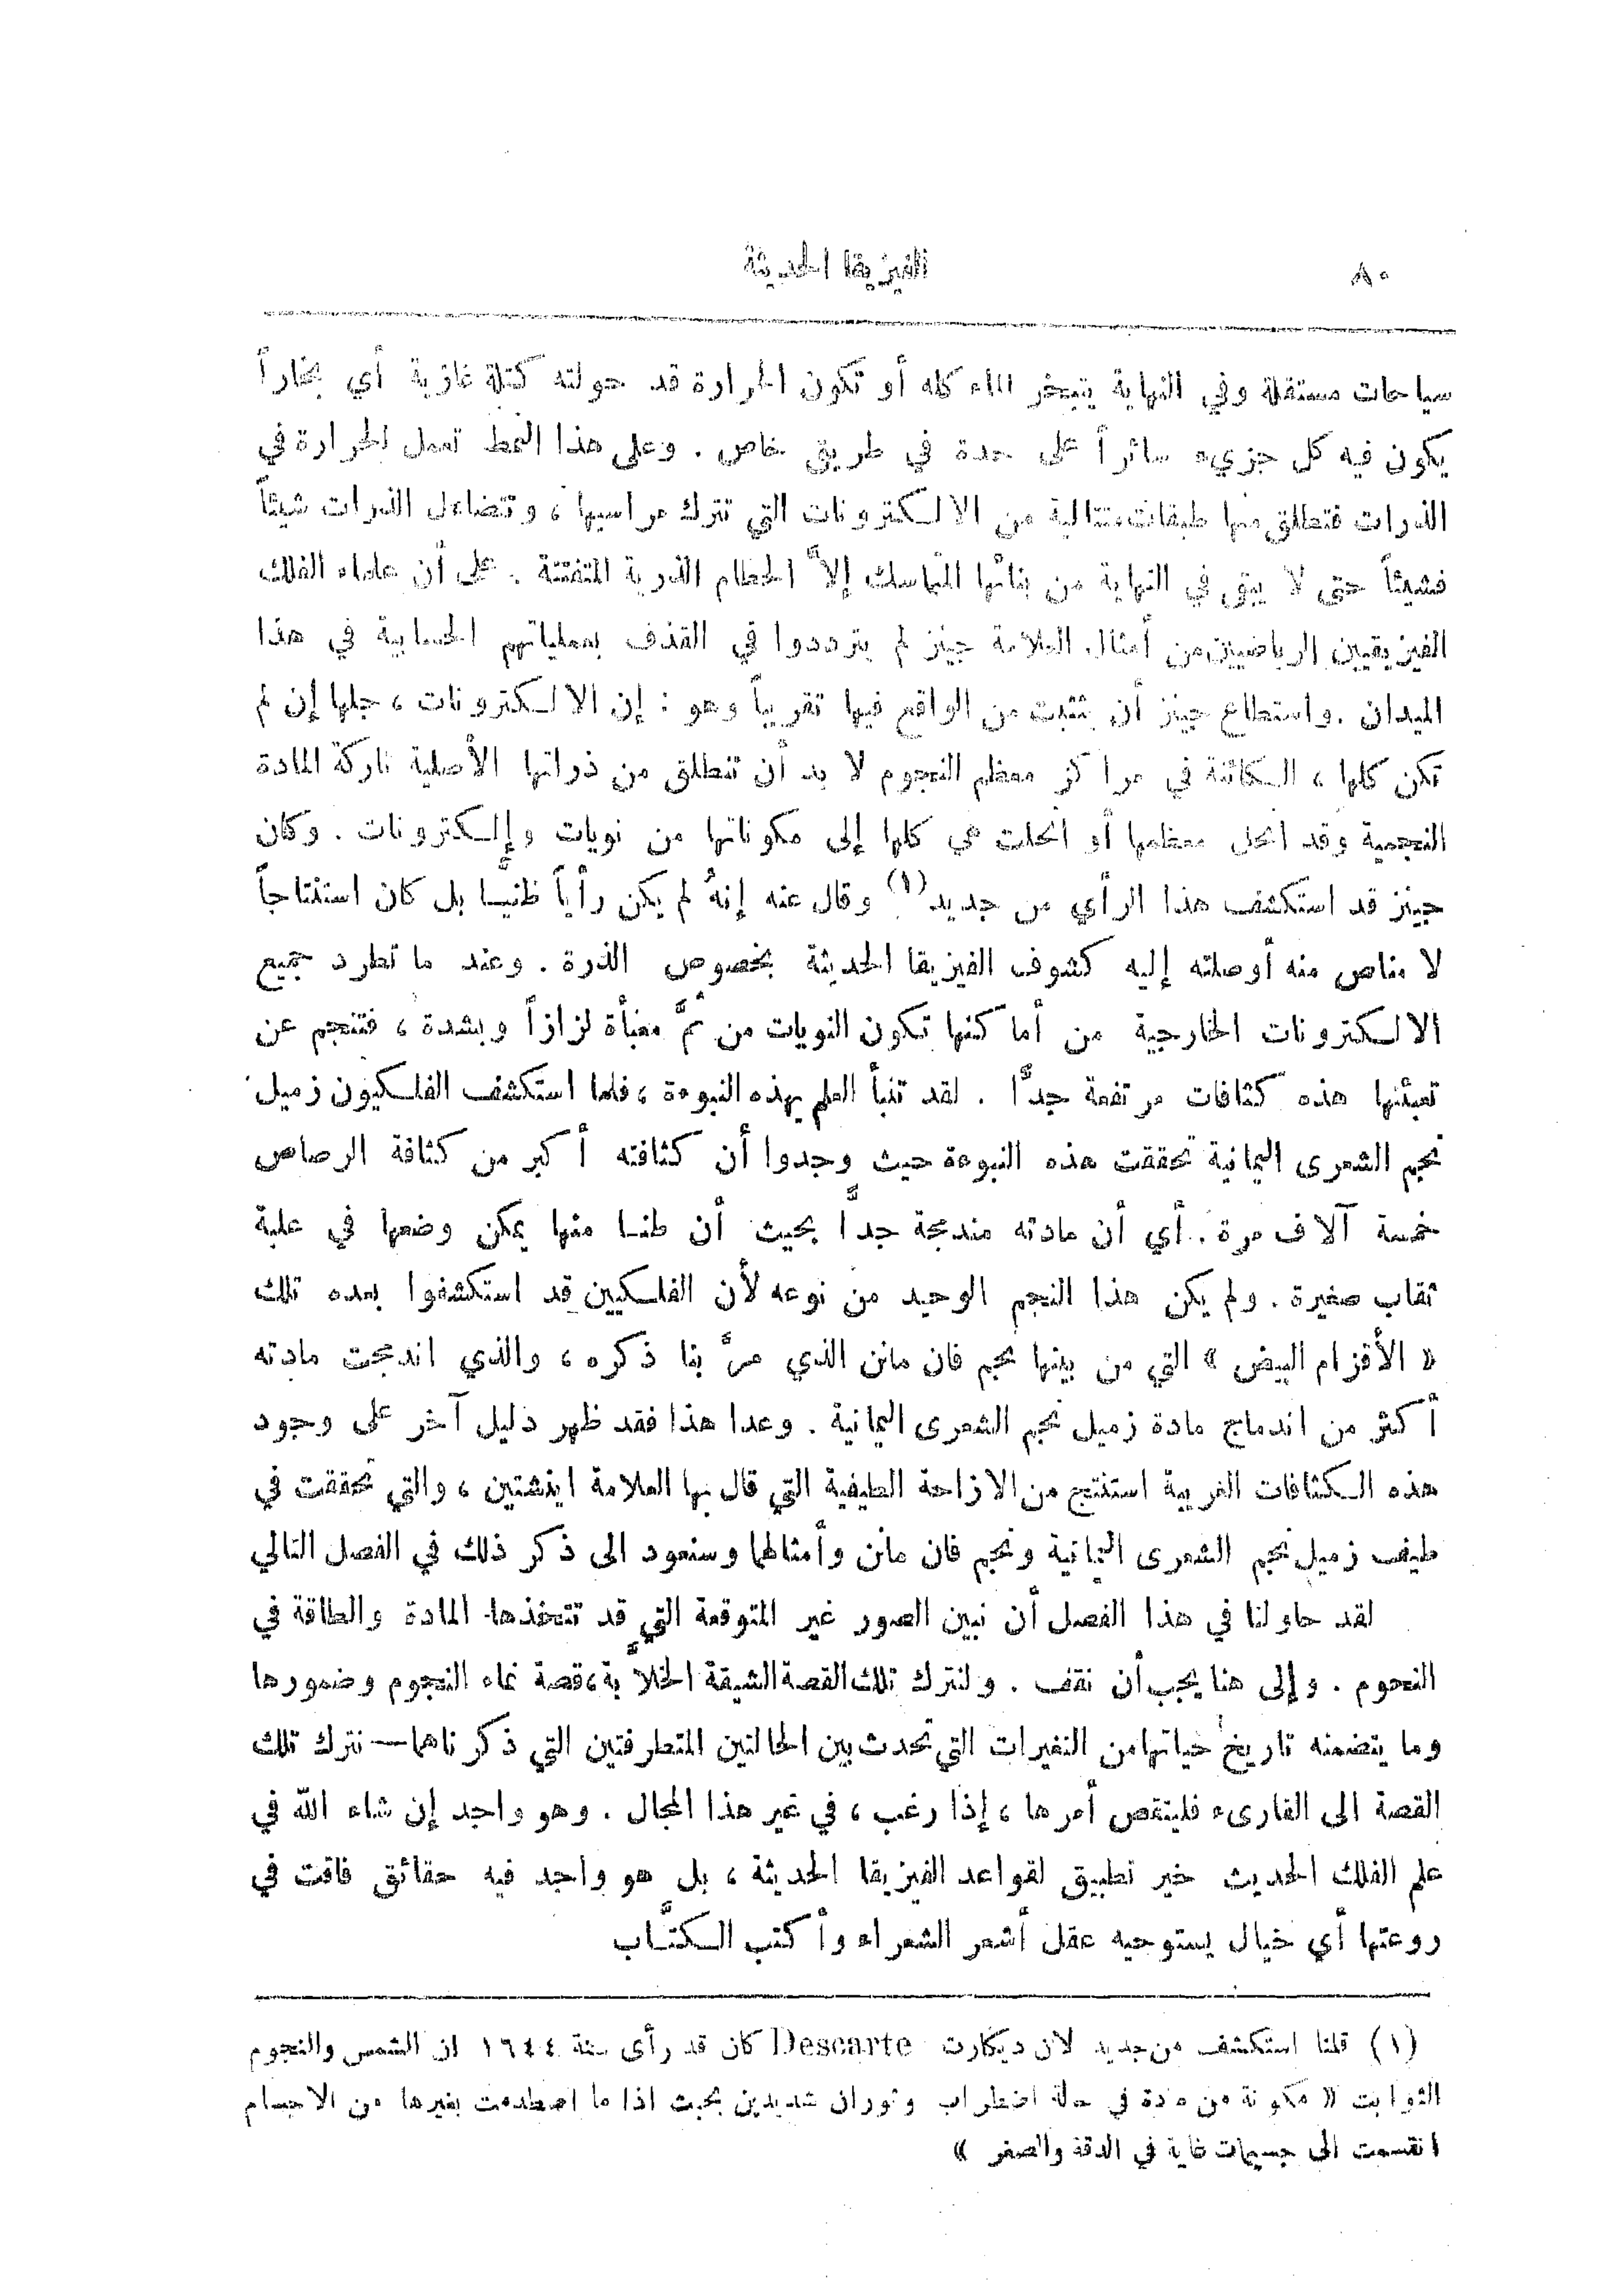 ٨٠
الفيزيقا الحديثة
سياحات مستقلة وفي النهاية يتبخر الماء كله أو تكون الحرارة قد حولته كتلة غازية أي بخاراً
يكون فيه كل جزيء سائراً على حدة في طريق خاص . وعلى هذا النمط تعمل الحرارة في
الذرات فتطلق منها طبقات متتالية من الالكترونات التي تترك مراسيها ، وتتضاءل الذرات شيئاً
فشيئاً حتى لا يبقى في النهاية من بنائها المتماسك إلاَّ الحطام الذرية المتفتتة . على أن علماء الفلك
الفيزيقيين الرياضيين من أمثال العلامة جينز لم يترددوا في القذف بعملياتهم الحسابية في هذا
الميدان . واستطاع جينز أن يتثبت من الواقع فيها تقريباً وهو : إن الالكترونات ، جلها إن لم
تكن كلها ، الكائنة في مراكز معظم النجوم لا بد أن تنطلق من ذراتها الأصلية تاركة المادة
النجمية وقد انحل معظمها أو انحلت هي كلها إلى مكوناتها من نويات وإلكترونات . وكان
جينز قد استكشف هذا الرأي من جديد (١) وقال عنه إنهُ لم يكن رأياً ظنيًّا بل كان استنتاجاً
لا مناص منه أوصلته إليه كشوف الفيزيقا الحديثة بخصوص الذرة . وعند ما تطرد جميع
الالكترونات الخارجية من أماكنها تكون النويات من ثمَّ معبأة لزازاً وبشدة ، فتنجم عن
تعبئتها هذه كثافات مرتفعة جدًّا . لقد تنبأ العلم بهذه النبوءة ، فلما استكشف الفلكيون زميل
نجم الشعرى اليمانية تحققت هذه النبوءة حيث وجدوا أن كثافته أكبر من كثافة الرصاص
خمسة آلاف مرة . أي أن مادته مندمجة جدًّا بحيث أن طنا منها يمكن وضعها في علبة
ثقاب صغيرة . ولم يكن هذا النجم الوحيد من نوعه لأن الفلكيين قد استكشفوا بعده تلك
« الأقزام البيض » التي من بينها نجم فان مانن الذي مرَّ بنا ذكره ، والذي اندمجت مادته
أكثر من اندماج مادة زميل نجم الشعرى اليمانية . وعدا هذا فقد ظهر دليل آخر على وجود
هذه الكثافات الغريبة استنتج من الازاحة الطيفية التي قال بها العلامة اينشتين ، والتي تحققت في
طيف زميل نجم الشعرى اليمانية ونجم فان مانن وأمثالها وسنعود الى ذكر ذلك في الفصل التالي
لقد حاولنا في هذا الفصل أن نبين الصور غير المتوقعة التي قد تتخذها المادة والطاقة في
النجوم . وإلى هنا يجب أن نقف . ولنترك تلك القصة الشيقة الخلاَّبة ، قصة نماء النجوم وضمورها
وما يتضمنه تاريخ حياتها من التغيرات التي تحدث بين الحالتين المتطرفتين التي ذكرناهما — نترك تلك
القصة الى القارىء فليتقص أمرها ، إذا رغب ، في غير هذا المجال . وهو واجد إن شاء الله في
علم الفلك الحديث خير تطبيق لقواعد الفيزيقا الحديثة ، بل هو واجد فيه حقائق فاقت في
روعتها أي خيال يستوحيه عقل أشعر الشعراء وأكتب الكتَّاب
(١) قلنا استكشف من جديد لان ديكارت Descarte كان قد رأى سنة ١٦٤٤ ان الشمس والنجوم
الثوابت « مكونة من مادة في حالة اضطراب وثوران شديدين بحيث اذا ما اصطدمت بغيرها من الاجسام
انقسمت الى جسيمات غاية في الدقة والصغر »